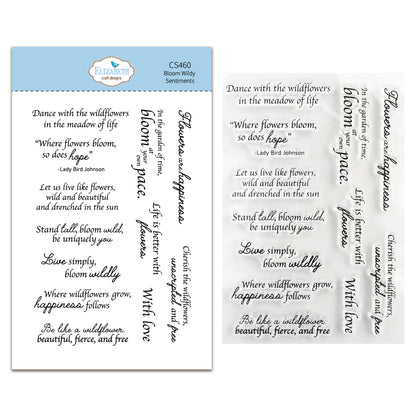 ELIZABETH
craft designs
CS460
Bloom Wildy
Sentiments
Dance with the wildflowers
in the meadow of life
“Where flowers bloom,
so does hope”
-Lady Bird Johnson
Let us live like flowers,
wild and beautiful
and drenched in the sun
Stand tall, bloom wild,
be uniquely you
Live simply,
bloom wildly
Where wildflowers grow,
happiness follows
Be like a wildflower
beautiful, fierce, and free
In the garden of time,
bloom at
your
own pace.
Life is better with
flowers
With love
Flowers are happiness
Cherish the wildflowers,
unscripted and free
Dance with the wildflowers
in the meadow of life
“Where flowers bloom,
so does hope”
-Lady Bird Johnson
Let us live like flowers,
wild and beautiful
and drenched in the sun
Stand tall, bloom wild,
be uniquely you
Live simply,
bloom wildly
Where wildflowers grow,
happiness follows
Be like a wildflower
beautiful, fierce, and free
In the garden of time,
bloom at
your
own pace.
Life is better with
flowers
With love
Flowers are happiness
Cherish the wildflowers,
unscripted and free